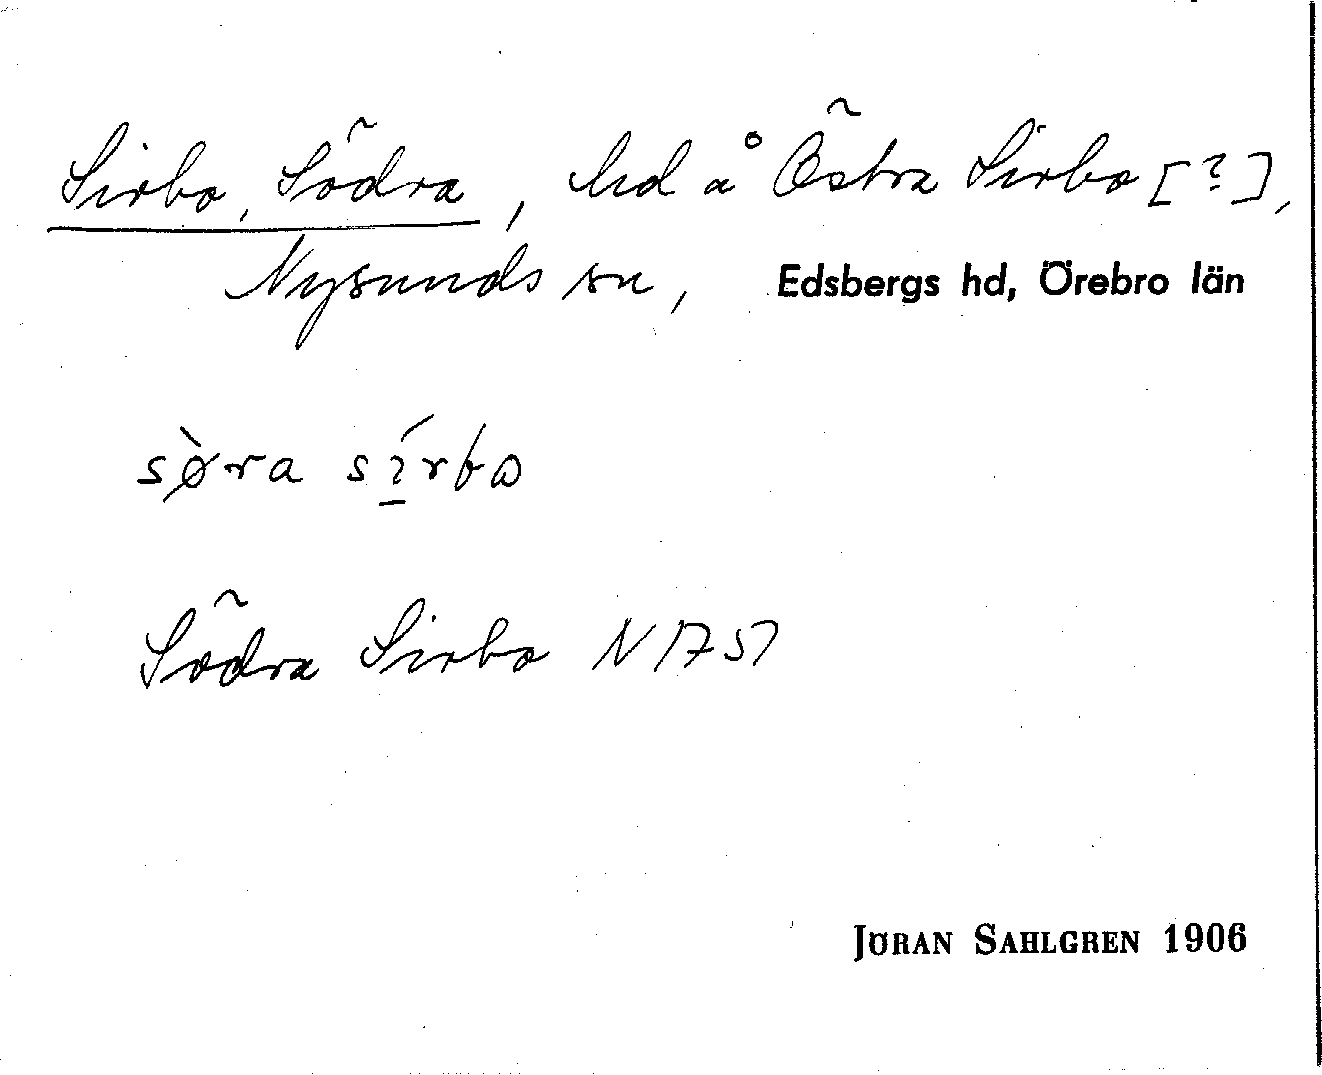 Sirbo, Södra, hd å Östra Sirbo [?],
Nysunds sn, Edsbergs hd, Örebro län
sø̀ra sí̱rbo
Södra Sirbo N 1757
JÖRAN SAHLGREN 1906